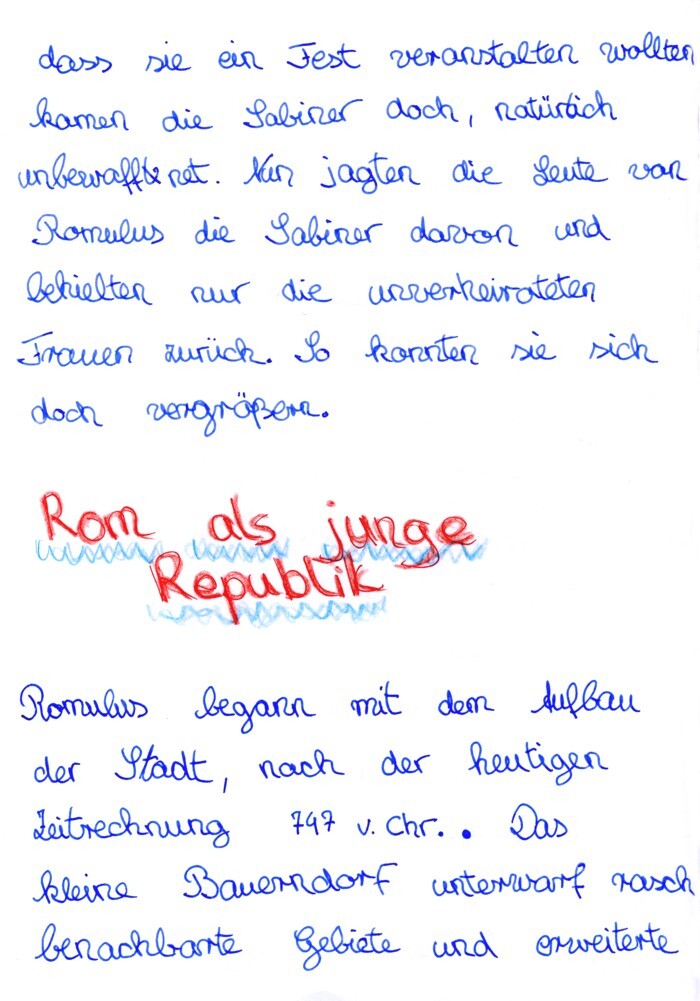 dass sie ein Fest veranstalten wollten
kamen die Sabiner doch, natürlich
unbewaffnet. Nun jagten die Leute von
Romulus die Sabiner davon und
behielten nur die unverheirateten
Frauen zurück. So konnten sie sich
doch vergrößern.
Rom als junge
Republik
Romulus begann mit dem Aufbau
der Stadt, nach der heutigen
Zeitrechnung 747 v. Chr.. Das
kleine Bauerndorf unterwarf rasch
benachbarte Gebiete und erweiterte